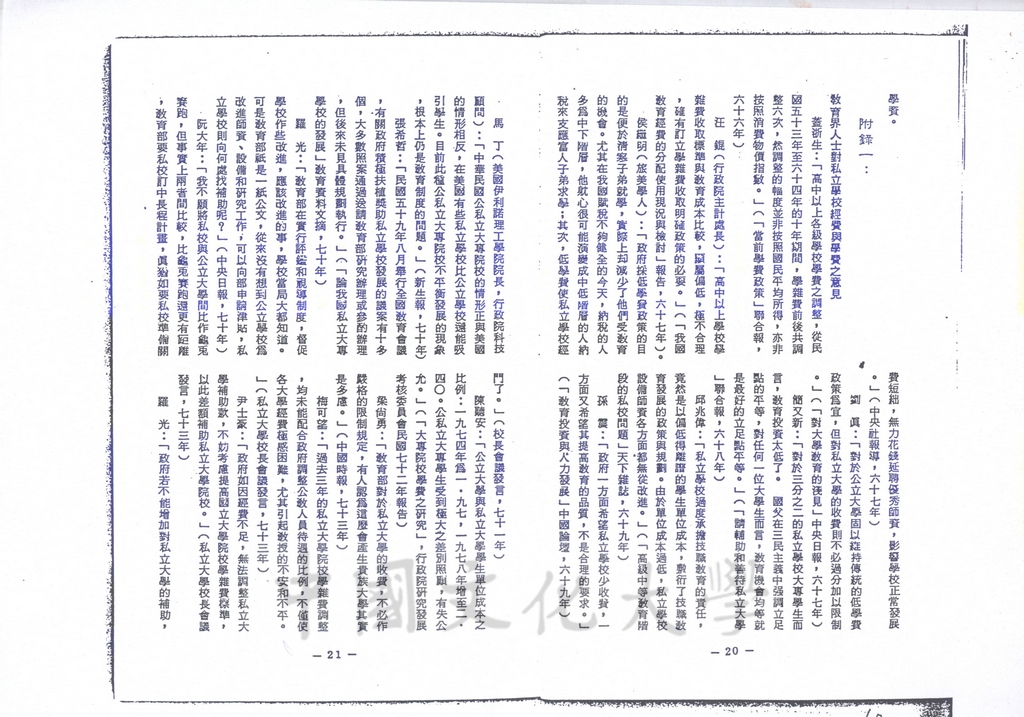 學資。
附錄一：
教育界人士對私立學校經費與學費之意見
蓋浙生：「高中以上各級學校學費之調整，從民
國五十三年至六十四年的十年期間，學雜費前後共調
整六次，然調整的幅度並非按照國民平均所得，亦非
按照消費物價指數。」（「當前學費政策」聯合報，
六十六年）
汪　錕（行政院主計處長）：「高中以上學校學
雜費收取標準與教育成本比較，顯屬偏低，極不合理
，確有訂立學雜費收取明確政策的必要。」（「我國
教育經費的分配使用現況與檢討」報告，六十七年）。
侯繼明（旅美學人）：「政府採低學費政策的目
的是便於清寒子弟就學，實際上却減少了他們受教育
的機會。尤其在我國賦稅不夠健全的今天，納稅的人
多為中下階層，他就心很可能演變成中低階層的人納
稅來支應富人子弟求學；其次，低學費使私立學校經
費短絀，無力花錢延聘優秀師資，影響學校正常發展
。」（中央社報導，六十七年）
劉　真：「對於公立大學固以維持傳統的低學費
政策為宜，但對私立大學的收費則不必過分加以限制
。」（「對大學教育的淺見」中央日報，六十七年）
簡又新：「對於三分之二的私立學校大專學生而
言，教育投資太低了。　國父在三民主義中强調立足
點的平等，對任何一位大學生而言，教育機會均等就
是最好的立足點平等。」（「請輔助和善待私立大學
」聯合報，六十八年）
邱兆偉：「私立學校過度承擔技職教育的責任，
竟然是以偏低得離譜的學生單位成本，敷衍了技職教
育發展的政策與規劃。由於單位成本過低，私立學校
設備師資各方面都無從改進。」（「高級中等教育階
段的私校問題」天下雜誌，六十九年）
孫　震：「政府一方面希望私立學校少收費，一
方面又希望其提高教育的品質，不是合理的要求。」
（「教育投資與人力發展」中國論壇，六十九年）
— 20 —
馬　丁（美國伊利諾理工學院院長，行政院科技
顧問）：「中華民國公私立大專院校的情形正與美國
的情形相反，在美國有些私立學校比公立學校還能吸
引學生。目前此種公私立大專院校不平衡發展的現象
，根本上仍是教育制度的問題。」（新生報，七十年）
張希哲：「民國五十九年八月舉行全國教育會議
，有關政府積極扶植獎助私立學校發展的議案有十多
個，大多數照案通過送請教育部研究辦理或參酌辦理
，但後來未見具體規劃執行。」（「論我國私立大專
學校的發展」教育資料文摘，七十年）
羅　光：「教育部在實行評鑑和視導制度，督促
學校作些改進，應該改進的事，學校當局大都知道。
可是教育部祇是一紙公文，從來沒有想到公立學校為
改進師資、設備和研究工作，可以向部申請津貼，私
立學校則向何處找補助呢？」（中央日報，七十年）
阮大年：「我不願將私校與公立大學間比作龜兎
賽跑，但事實上兩者間比較，比龜兎賽跑還更有距離
，教育部要私校訂中長程計畫，眞猶如要私校準備關
門了。」（校長會議發言，七十一年）
陳聽安：「公立大學與私立大學學生單位成本之
比例：一九七四年為一．九七，一九七八年增至二．
四〇。公私立大專學生受到極大之差別照顧，有失公
允。」（「大專院校學費之研究」，行政院研究發展
考核委員會民國七十二年報告）
梁尚勇：「教育部對於私立大學的收費，不必作
嚴格的限制規定，有人認為這麼會產生貴族大學其實
是多慮。」（中國時報，七十三年）
梅可望：「過去三年的私立大學院校學雜費調整
，均未能配合政府調整公敎人員待遇的比例，不僅使
各大學經費極感困難，尤其引起敎授的不安和不平。
」（私立大學校長會議發言，七十三年）
尹士豪：「政府如因經費不足，無法調整私立大
學補助款，不妨考慮提高國立大學院校學雜費標準，
以此差額補助私立大學院校。」（私立大學校長會議
發言，七十三年）
羅　光：「政府若不能增加對私立大學的補助，
— 21 —
中國文化大學